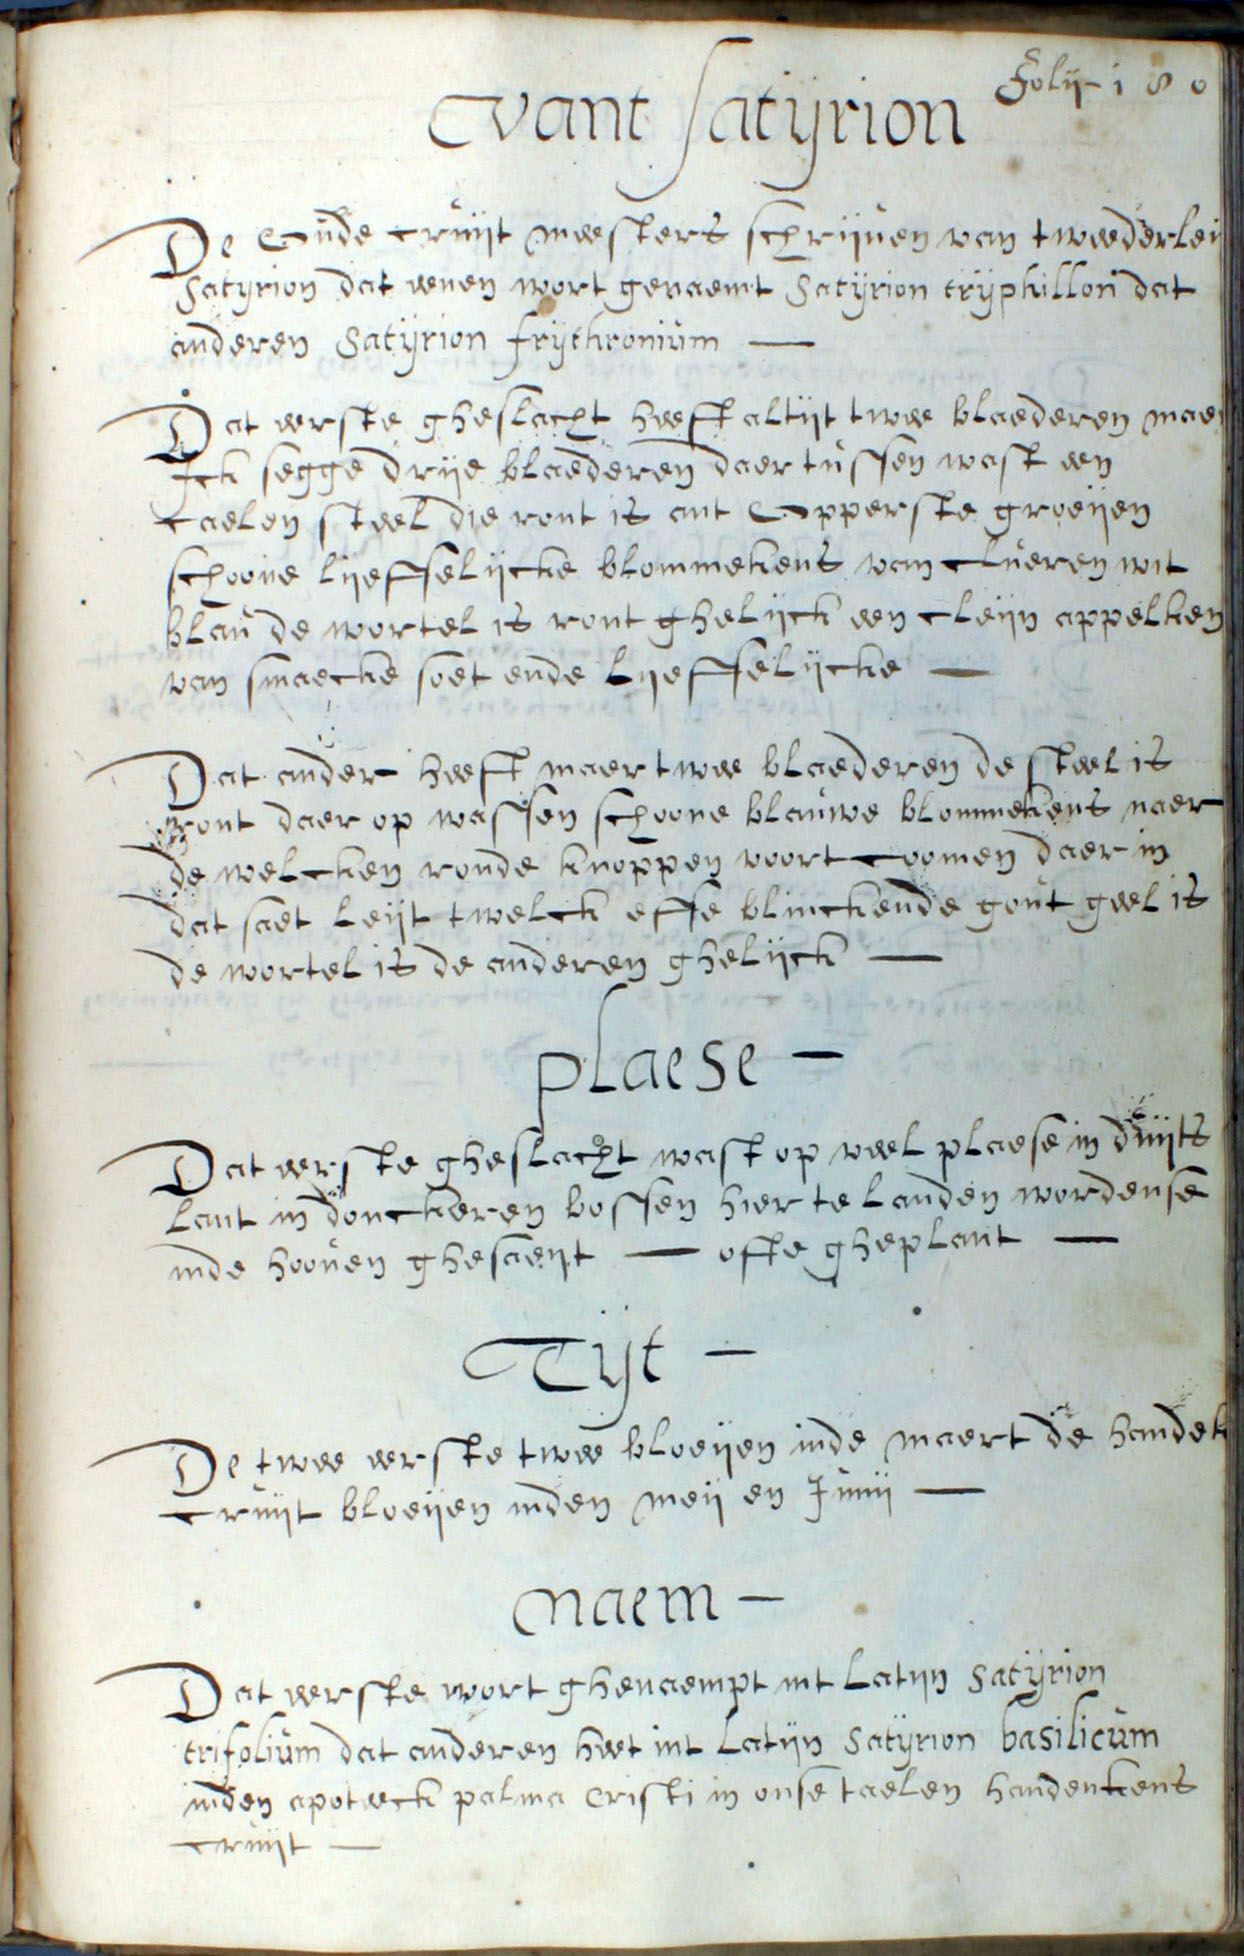 Folij 180
Vant Satijrion
De Oude cruijt meesters schrijven van tweederleij
Satyrion dat eenen wort genaemt Satijrion trijphillon dat
anderen Satijrion frijthronium —
Dat eerste gheslacht heeft altijt twee blaederen maer
Ick segge drije blaederen daer tussen wast een
caelen steel die ront is ant Opperste groeijen
schoone lijeffelijcke blommekens van clueren wit
blau de wortel is ront ghelijck een cleijn appelken
van smaecke soet ende Lijeffelijcke —
Dat ander heeft maer twee blaederen de steel is
ront daer op wassen schoone blauwe blommekens naer
de welcken ronde knoppen voort coomen daer in
dat saet Leijt twelck effe blinckende gout geel is
de wortel is de anderen ghelijck —
plaese —
Dat eerste gheslacht wast op veel plaese in duijts
Lant in donckeren bossen hier te Landen wordense
inde hooven ghesaeijt — ofte gheplant —
Tijt —
De twee eerste twee bloeijen inde maert de handek
cruijt bloeijen inden meij en Junij —
Naem —
Dat eerste wort ghenaempt int Latijn Satijrion
trifolium dat anderen heet int Latijn Satijrion basilicum
inden apoteeck palma Cristi in onse taelen handenkens
cruijt —